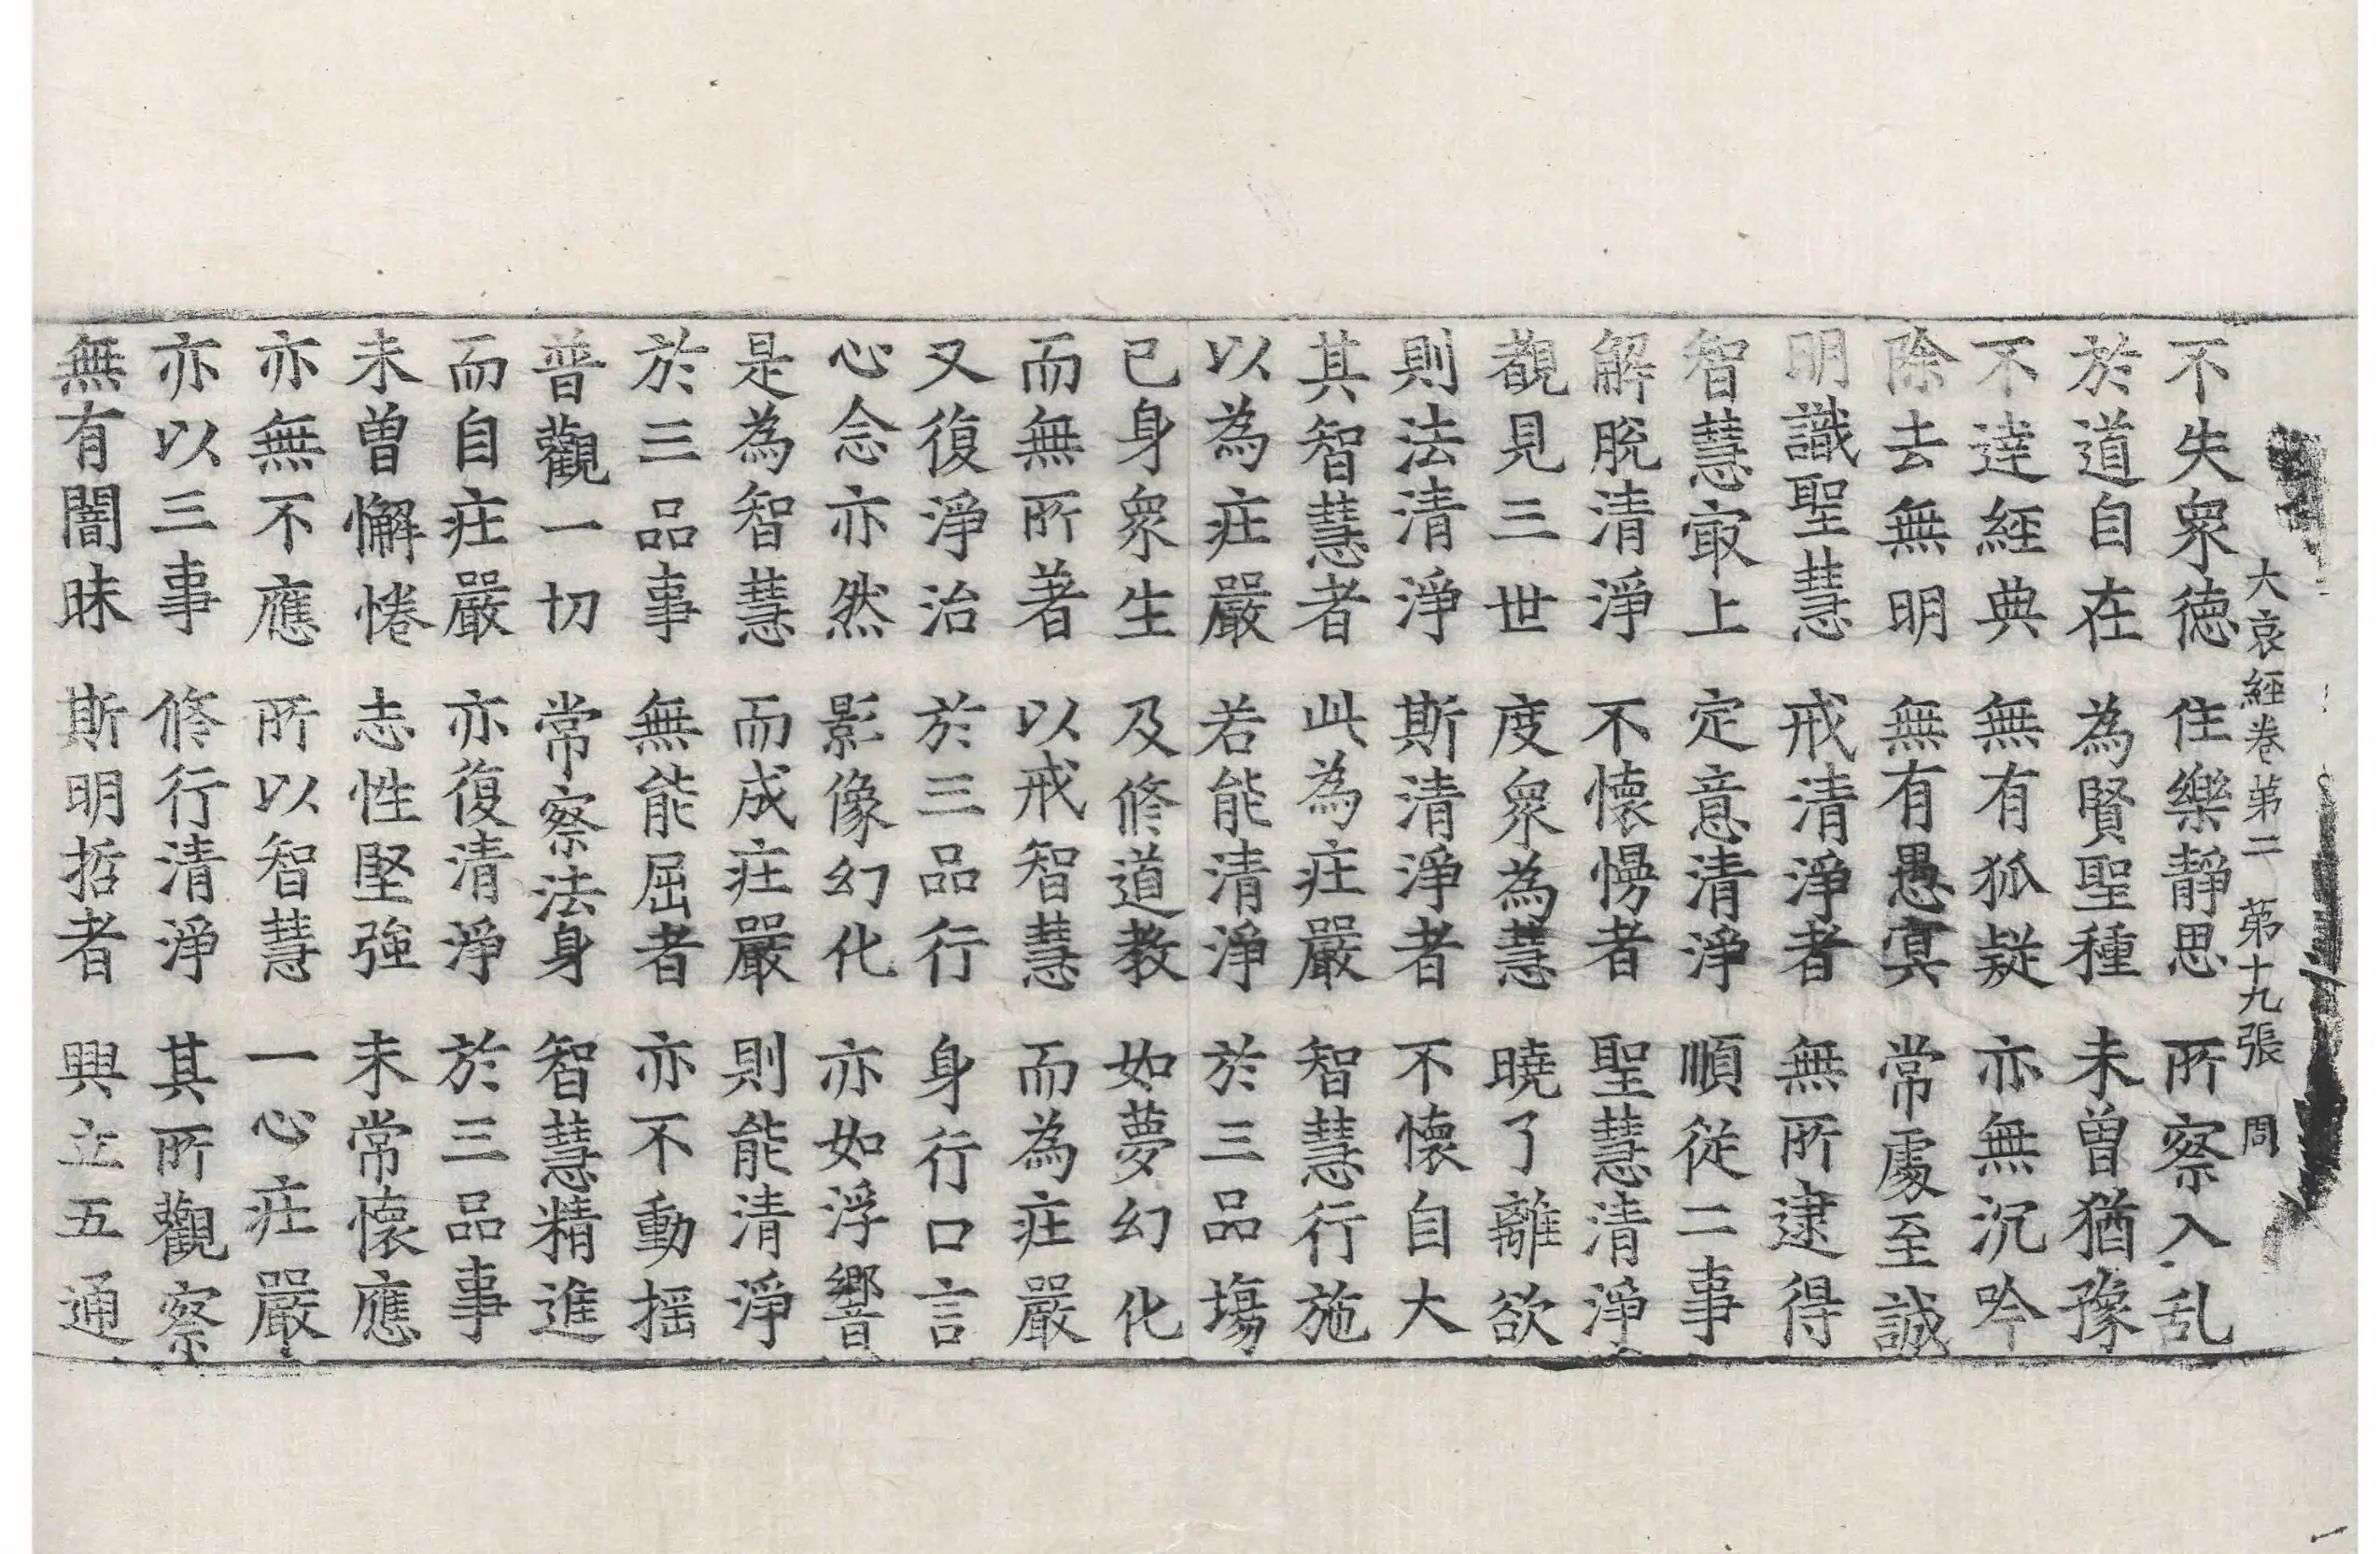 大哀經卷第二 第十九張 周
不失衆徳 住樂靜思 所察入乱
於道自在 為賢聖種 未曾猶豫
不達經典 無有狐疑 亦無沉吟
除去無明 無有愚㝠 常處至誠
明識聖慧 戒清淨者 無所逮得
智慧㝡上 定意清淨 順從二事
解脫清淨 不懷慢者 聖慧清淨
覩見三世 度衆為慧 曉了離欲
則法清淨 斯清淨者 不懷自大
其智慧者 此為疘嚴 智慧行施
以為疘嚴 若能清淨 於三品塲
已身衆生 及修道教 如夢幻化
而無所著 以戒智慧 而為疘嚴
又復淨治 於三品行 身行口言
心念亦然 影像幻化 亦如浮響
是為智慧 而成疘嚴 則能清淨
於三品事 無能屈者 亦不動揺
普觀一切 常察法身 智慧精進
而自疘嚴 亦復清淨 於三品事
未曾懈惓 志性堅強 未常懷應
亦無不應 所以智慧 一心疘嚴
亦以三事 修行清淨 其所觀察
無有闇昧 斯明哲者 興立五通